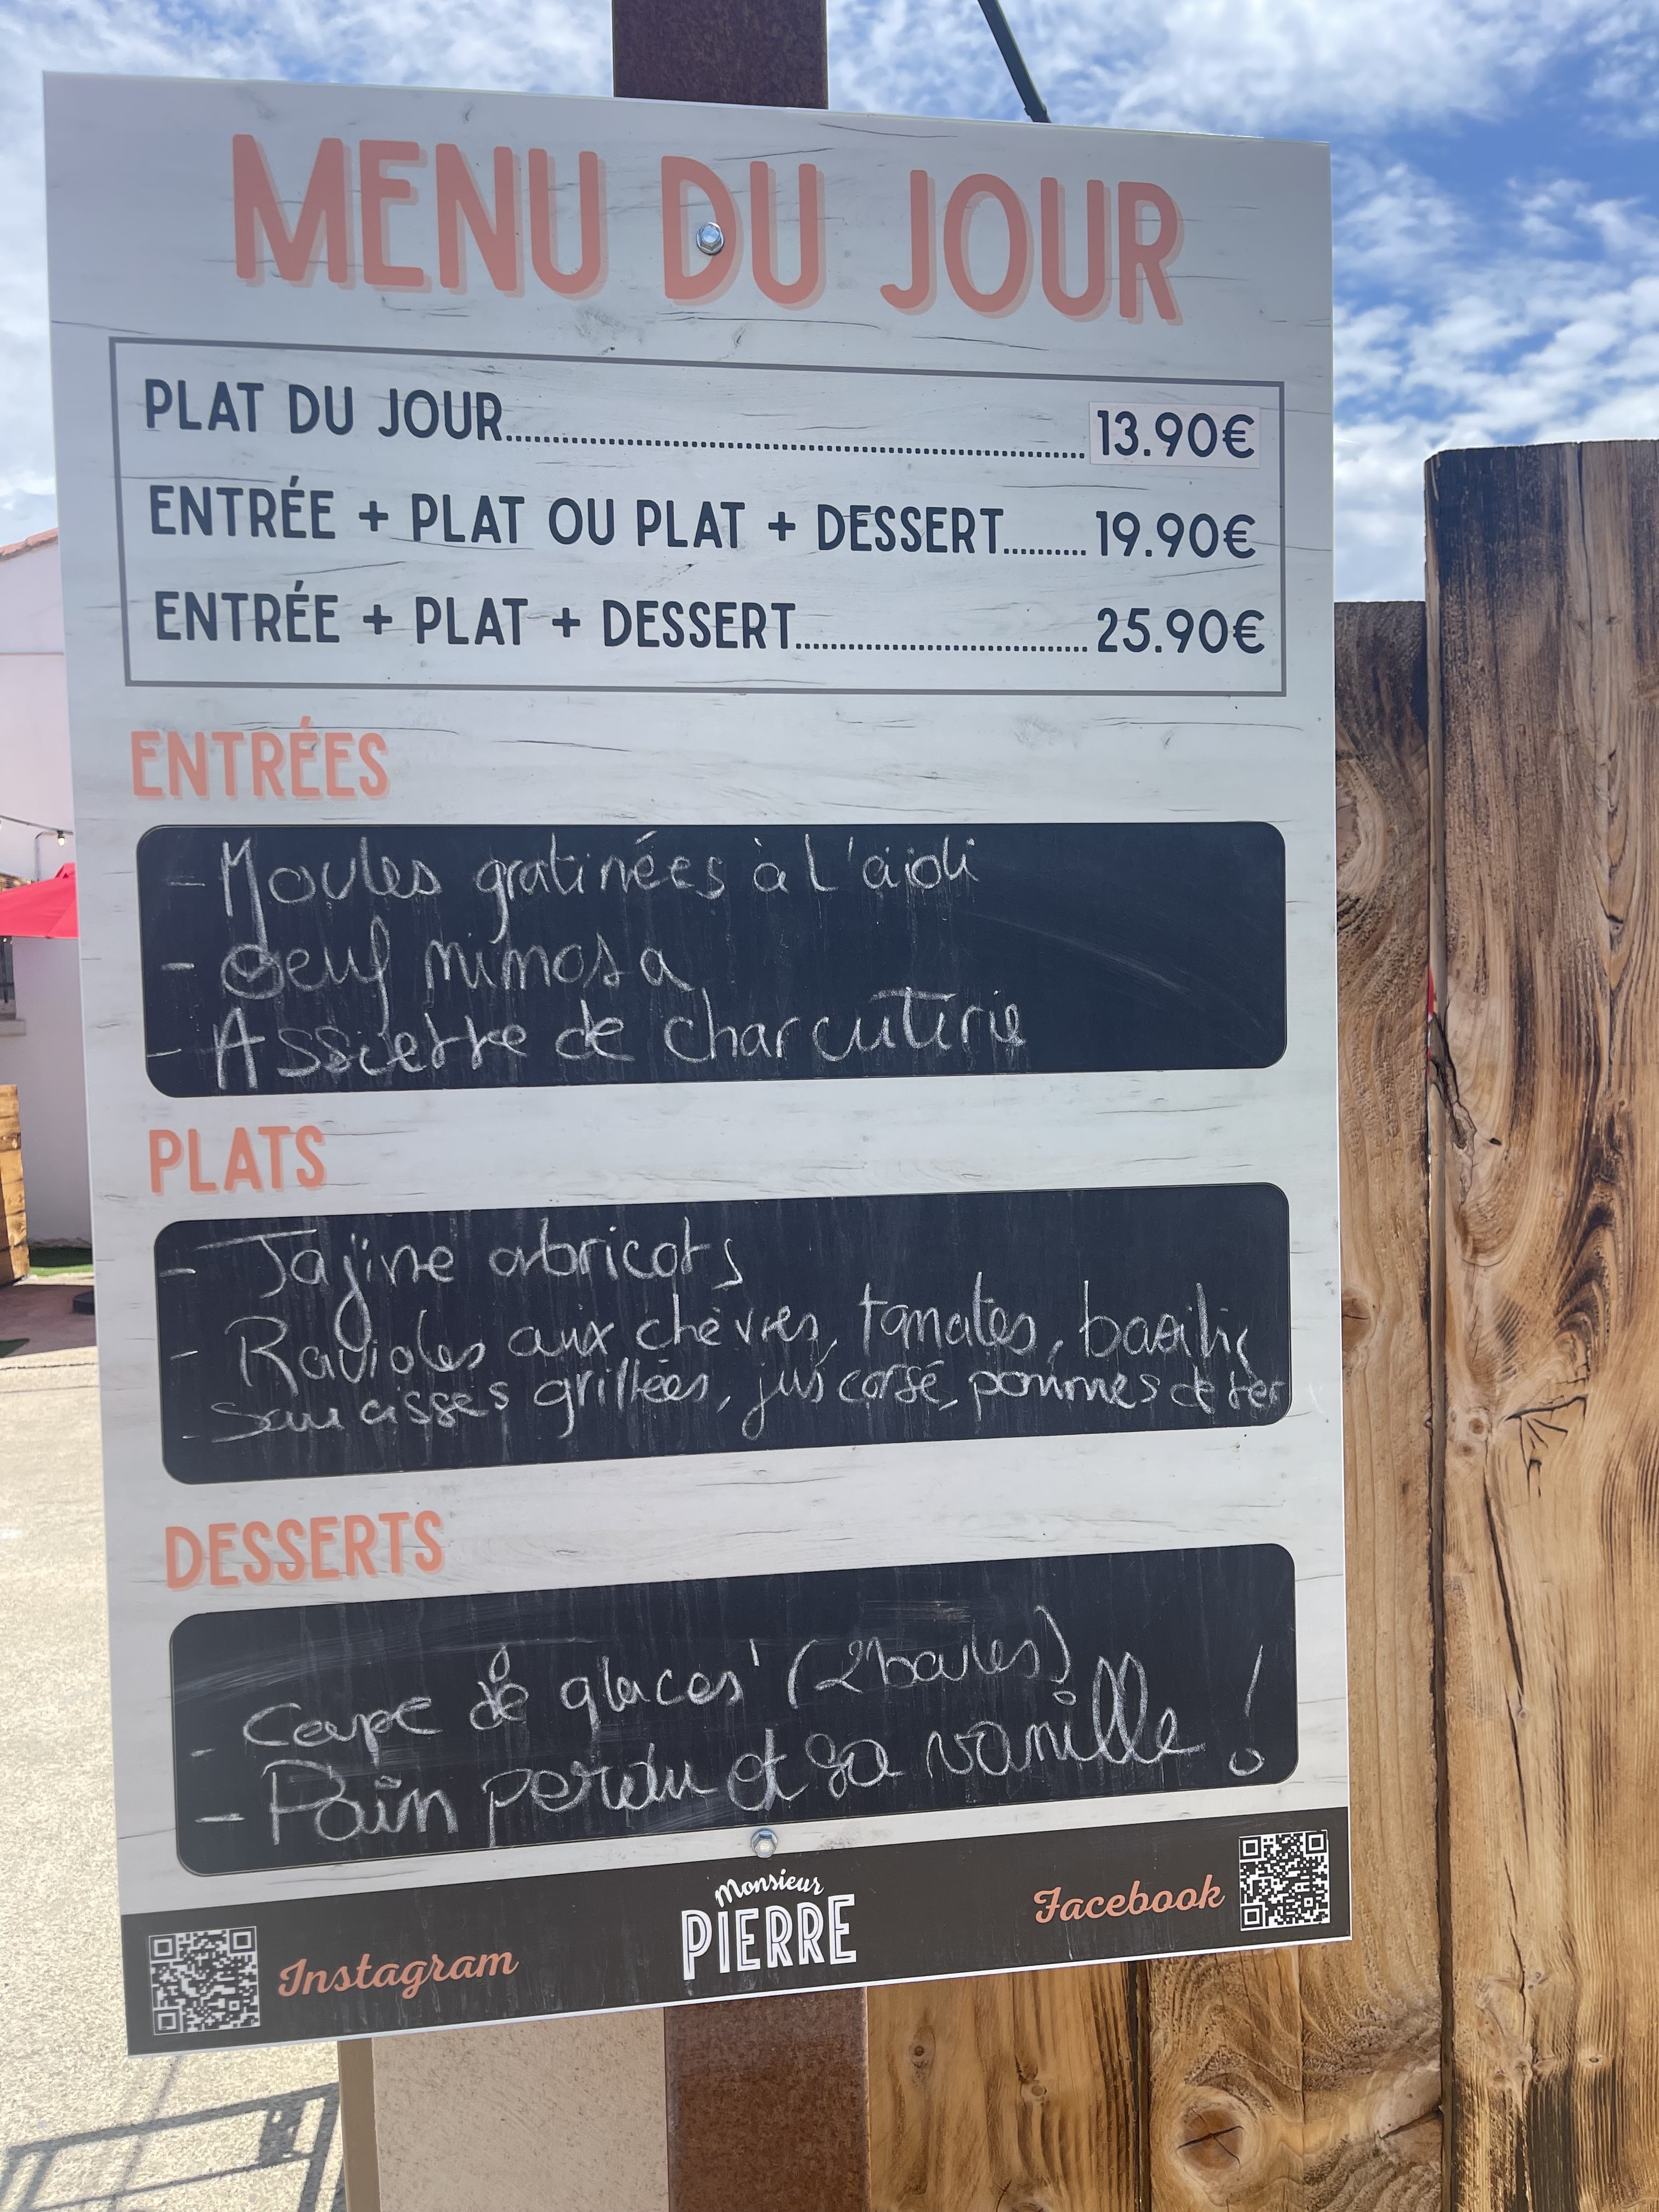 MENU DU JOUR
PLAT DU JOUR 13.90€
ENTRÉE + PLAT OU PLAT + DESSERT 19.90€
ENTRÉE + PLAT + DESSERT 25.90€
ENTRÉES
- Moules gratinées à l'aïoli
- Oeuf mimosa
- Assiette de charcuterie
PLATS
- Tajine abricots
- Ravioles aux chèvres, tomates, basilic
- Saucisses grillées, jus corsé, pommes de ter
DESSERTS
- Coupe de glaces (2 boules)
- Pain perdu et sa vanille !
Monsieur
PIERRE
Instagram
Facebook